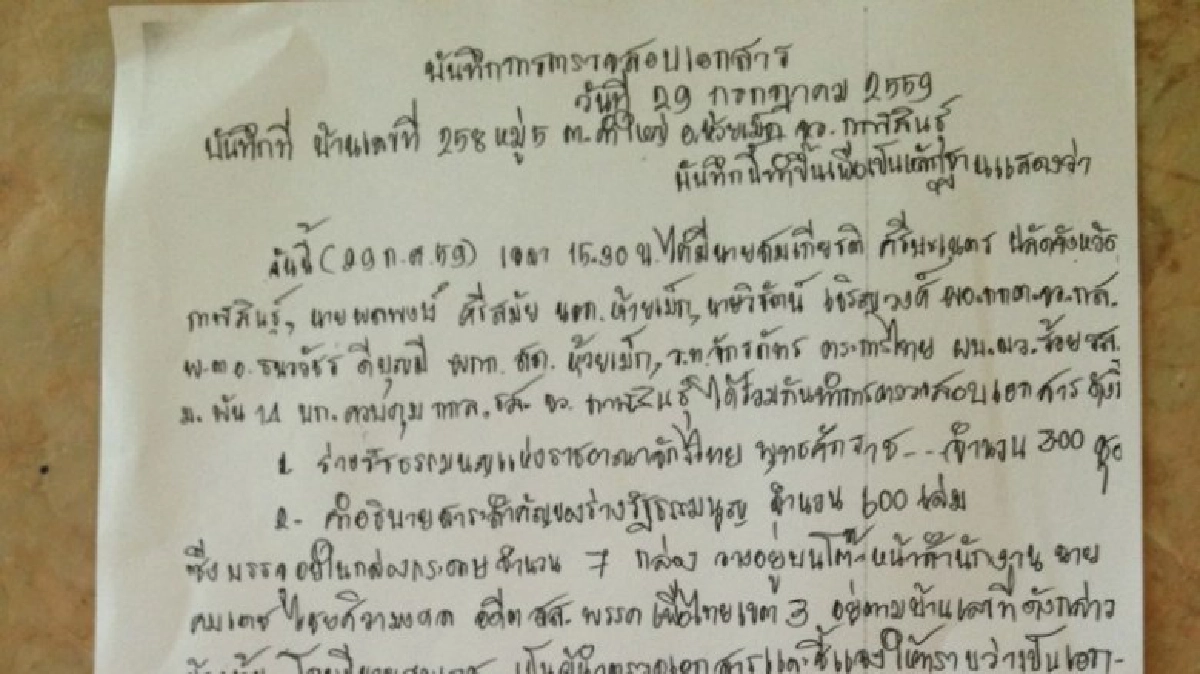 บันทึกการตรวจสอบเอกสาร
วันที่ 29 กรกฎาคม 2559
บันทึกที่ บ้านเลขที่ 258 หมู่ 5 ต.คำใหญ่ อ.ห้วยเม็ก จว.กาฬสินธุ์
บันทึกนี้ทำขึ้นเพื่อเป็นหลักฐานแสดงว่า
วันนี้ (29 ก.ค.59) เวลา 15.30 น. ได้มีนายสมเกียรติ ปลัดจังหวัด
กาฬสินธุ์, นายพลพงษ์ ศรีสมัย นอก.ห้วยเม็ก, นายวิรัตน์ เจริญวงศ์ ผอ.กกต.จว.กส.
พ.ต.อ.ธนวัชร ดีบุญมี ผกก.สภ.ห้วยเม็ก, ร.ท.จักรภัทร ตระการไทย ผบ.มว.ร้อย.รส.
ม.พัน 14 บก.ควบคุม กกล.รส. จว.กาฬสินธุ์ ได้ร่วมกันทำการตรวจสอบเอกสาร ดังนี้
1. ร่างรัฐธรรมนูญแห่งราชอาณาจักรไทย พุทธศักราช... จำนวน 300 ชุด
2.- คำอธิบายสาระสำคัญของร่างรัฐธรรมนูญ จำนวน 600 เล่ม
ซึ่งบรรจุอยู่ในกล่องกระดาษจำนวน 7 กล่อง วางอยู่บนโต๊ะหน้าสำนักงาน นาย
คมเดช ไชยศิวามงคล อดีต สส.พรรคเพื่อไทยเขต 3 อยู่ตามบ้านเลขที่ดังกล่าว
ข้างต้น โดยมีนายคมเดช เป็นผู้นำตรวจเอกสารและชี้แจงให้ทราบว่าเป็นเอก-